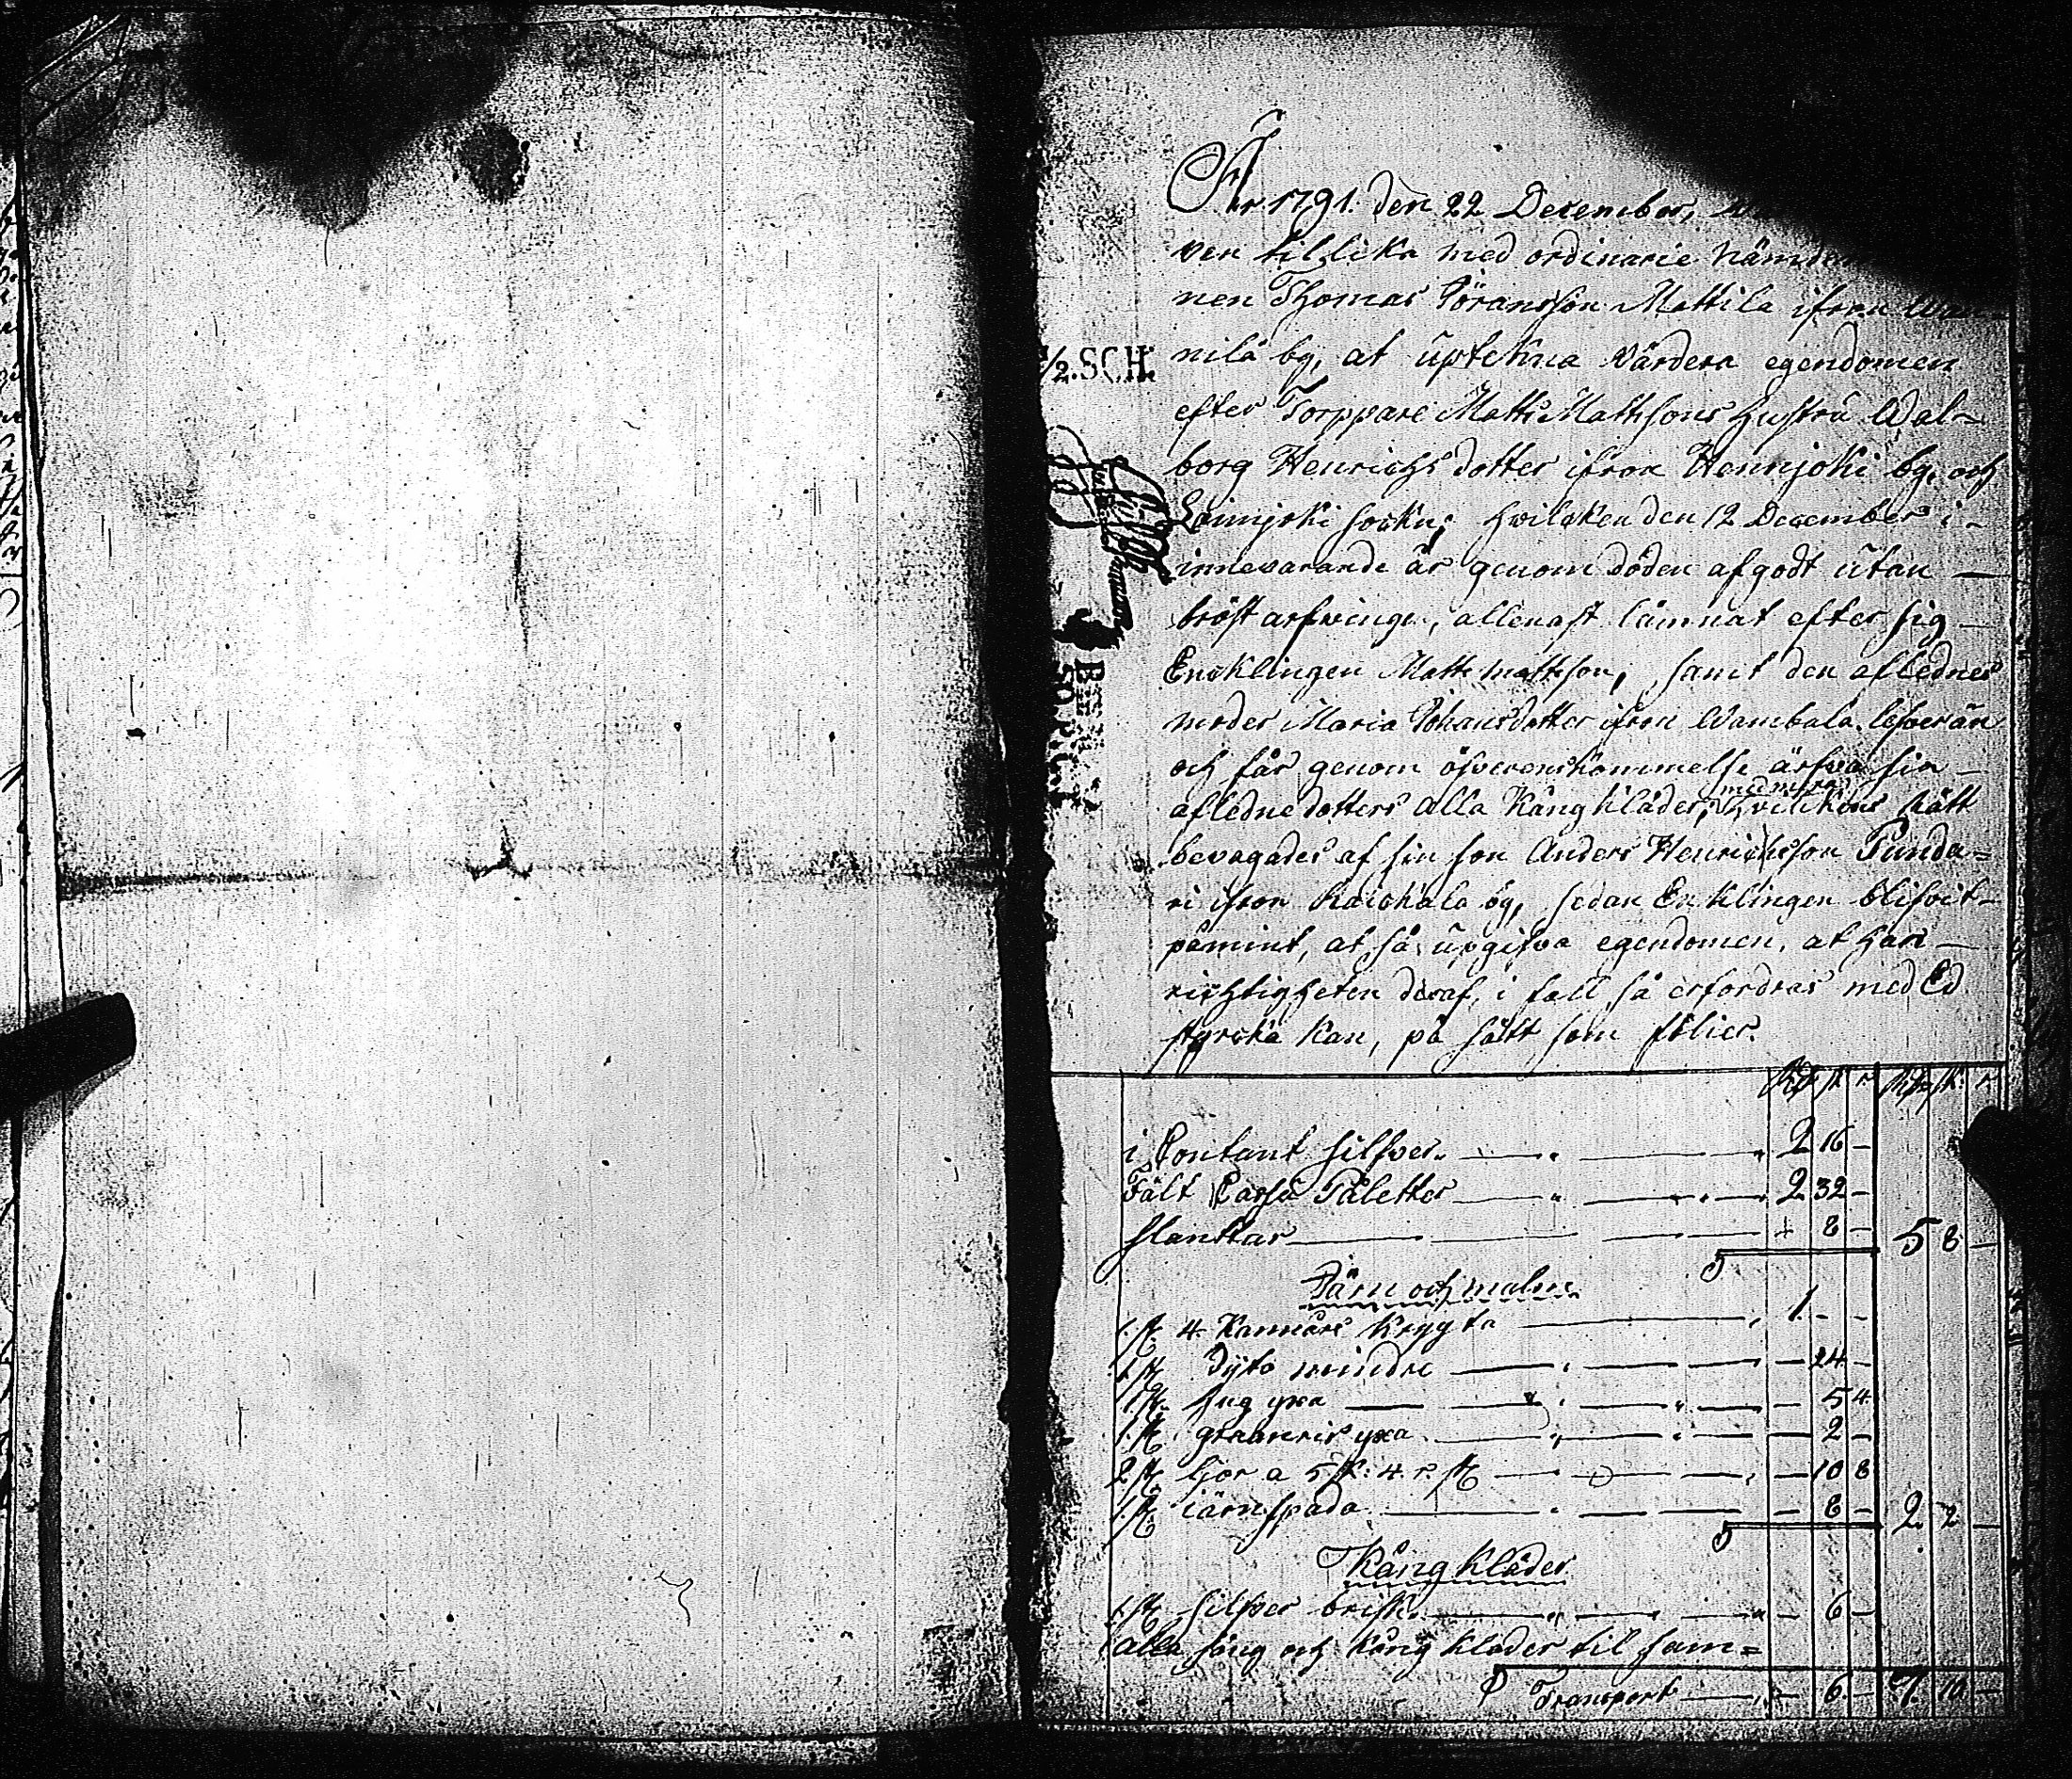 År 1791. den 22 December,
ven tillika med ordinarie nämde
nen Thomas Göransson Mattila ifron Wan
nilä by, at uptekna värdera egendomen
½.SCH.
efter Torppare Matts Mattssons hustru Wal-
borg Henrichsdotter ifron Hennijoki by, och
Loimjoki sockn; hvilcken den 12 December i-
innevarande år genom döden afgådt utan —
bröst arfwingar, allenast lämnat efter sig —
Encklingen Matts Mattsson, samt den aflednes
moder Maria Johansdotter ifron Wambala. lefver än
och får genom öfverenskommelse ärfva sin —
afledne dotters alla Kång kläder, hvilckens rätt
bevagades af sin son Anders Henrichsson Punda-
ri ifron Raiskala by, sedan Encklingen blifvit-
påmint, at så upgifva egendomen, at han —
richtigheten deraf, i fall så erfordras med Ed
styrcka kan, på sätt som fölier.
Rd sk r Rd sk r
i Contant silfver. — 2 16 —
Fält Cassu Påletter — 2 32 —
slanttar — 8 — 5 8 —
Järn och malm
1. st 4. Kannars Krygta — 1. - -
1 st dyto mindre — 24 —
1 st hug yxa — 5 4
1. st yxa — 2 —
2 st ljor a 5 sk: 4 r. st — 10 8
1. st iärnspada — 8 — 2. 2 —
Kång Kläder
1. st silfver brisk. — 6 —
alla säng och Kång kläder til sam=
Transport — 6 — 7. 10 —